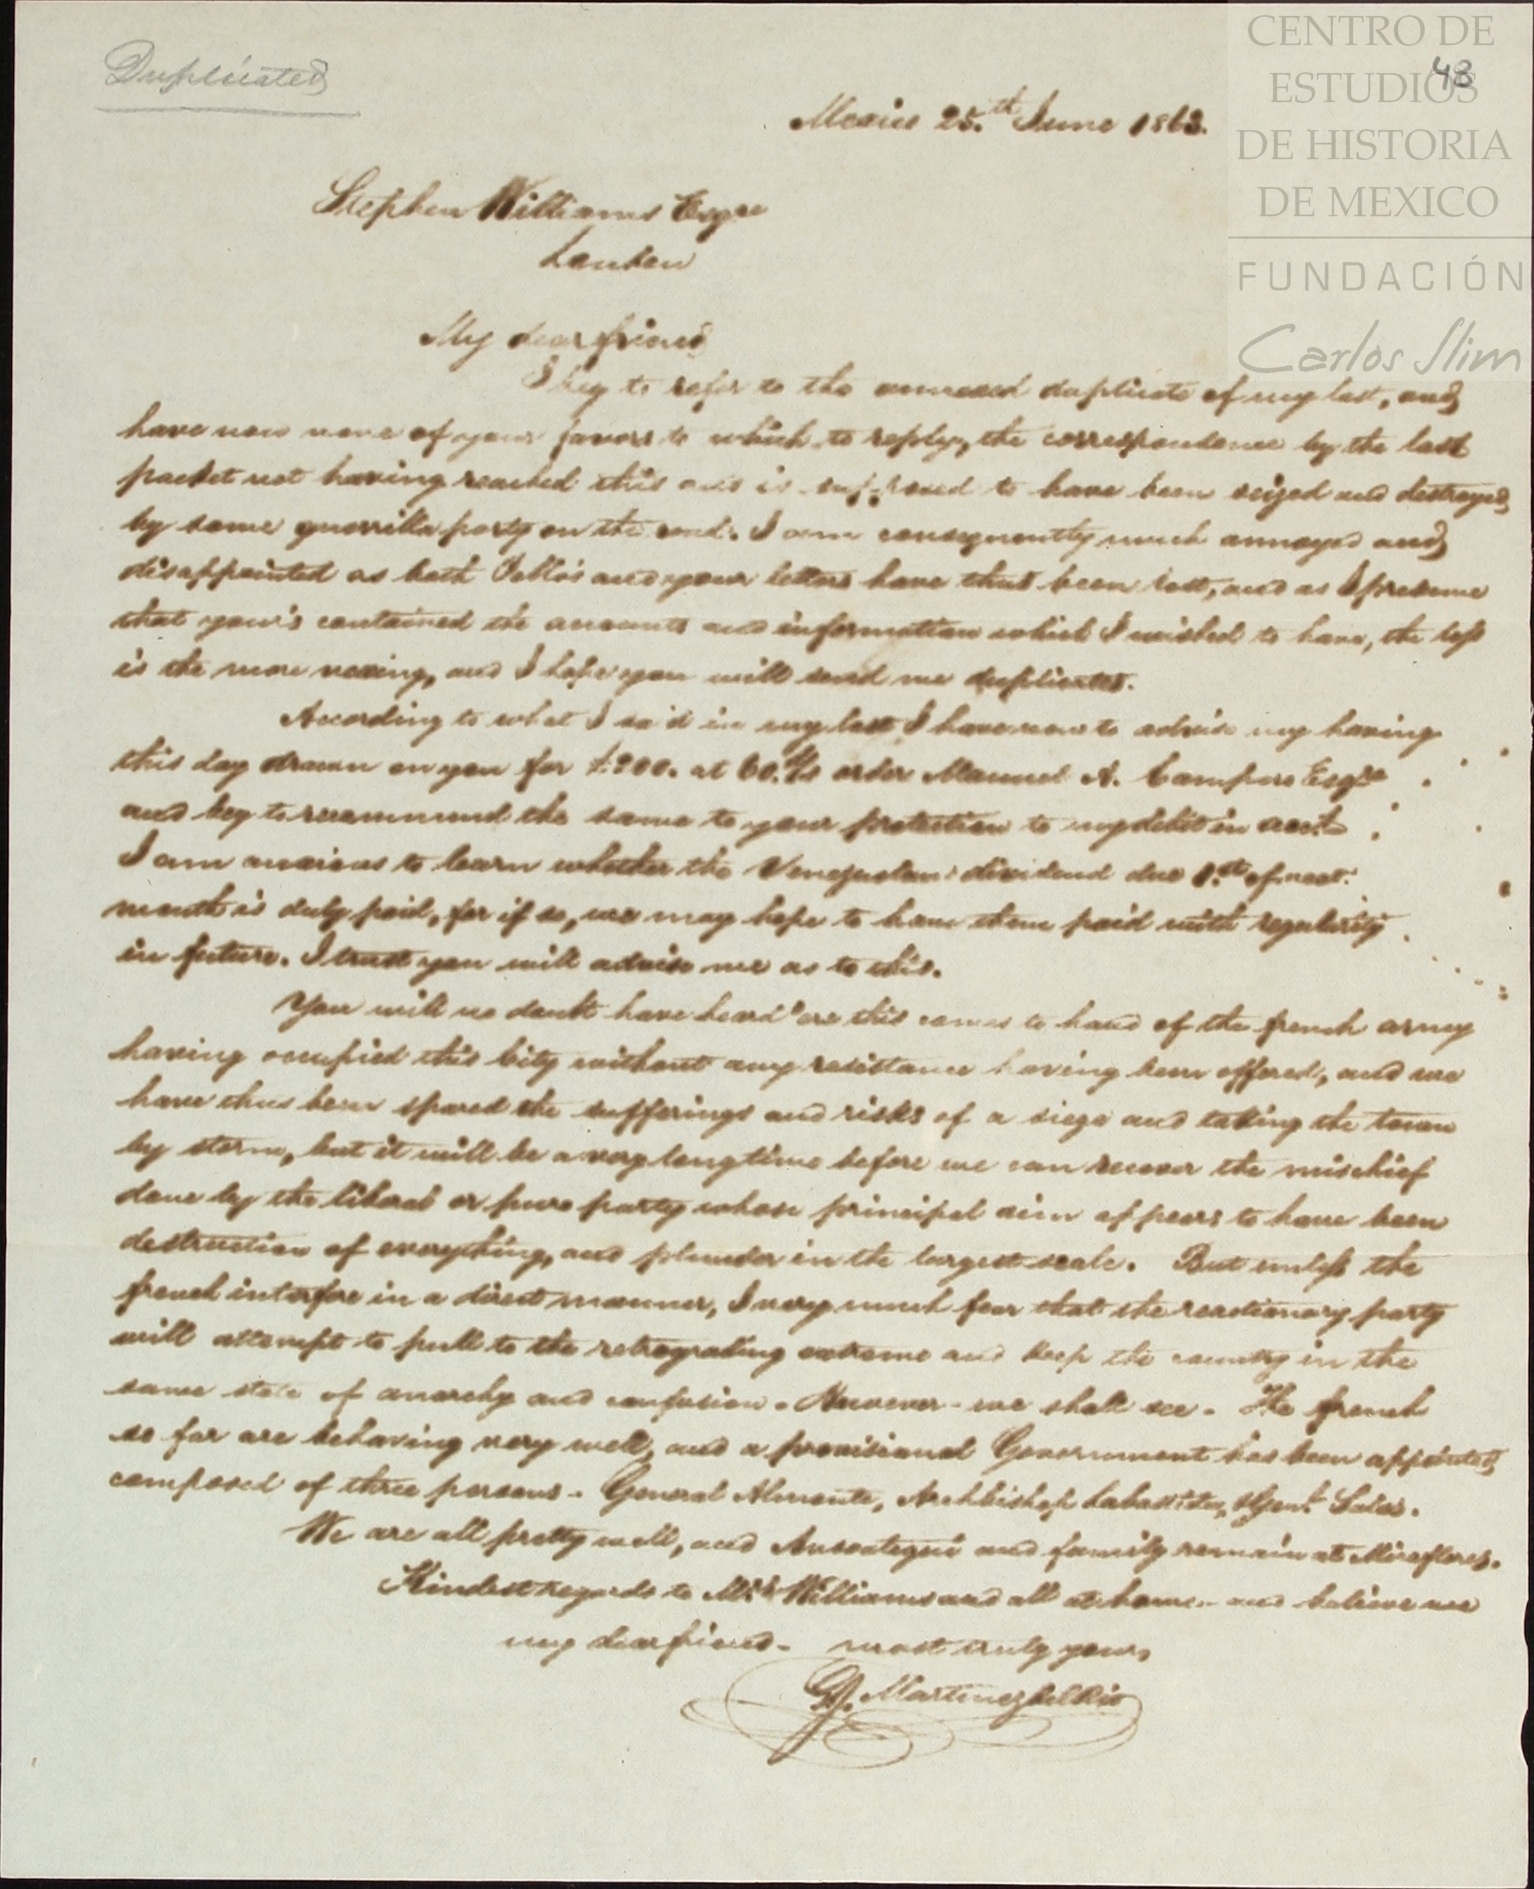 Duplicated
48
CENTRO DE
ESTUDIOS
DE HISTORIA
DE MEXICO
FUNDACIÓN
Carlos Slim
Mexico 25.th June 1863.
Stephen Williams Esqre
London
My dear friend
I beg to refer to the annexed duplicate of my last, and
have now none of your favors to which to reply, the correspondence by the last
packet not having reached this and is supposed to have been seized and destroyed
by some guerrilla party on the road. I am consequently much annoyed and
disappointed as both Pablo's and your letters have thus been lost, and as I presume
that your's contained the accounts and information which I wished to have, the loss
is the more vexing, and I hope you will send me duplicates.
According to what I said in my last I have now to advise my having
this day drawn on you for £200. at 60.d/s order Manuel A. Campero Esqre
and beg to recommend the same to your protection to my debit in acct.
I am anxious to learn whether the Venezuelan dividend due 1.st of next
month is duly paid, for if so, we may hope to have them paid with regularity
in future. I trust you will advise me as to this.
You will no doubt have heard 'ere this comes to hand of the french army
having occupied this City without any resistance having been offered, and we
have thus been spared the sufferings and risks of a siege and taking the town
by storm, but it will be a very long time before we can recover the mischief
done by the liberal or puro party whose principal aim appears to have been
destruction of everything, and plunder in the largest scale. But unless the
french interfere in a direct manner, I very much fear that the reactionary party
will attempt to pull to the retrograding extreme and keep the country in the
same state of anarchy and confusion. However - we shall see - The french
so far are behaving very well, and a provisional Government has been appointed
composed of three persons - General Almonte, Archbishop Labastida, & Genl. Salas.
We are all pretty well, and Ansoategui and family remain at Miraflores.
Kindest regards to Mrs Williams and all at home - and believe me
my dear friend - most truly yours
G. Martinez del Rio